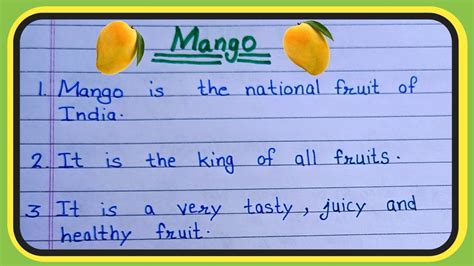 Mango
1. Mango is the national fruit of
India.
2. It is the king of all fruits.
3 It is a very tasty, juicy and
healthy fruit.